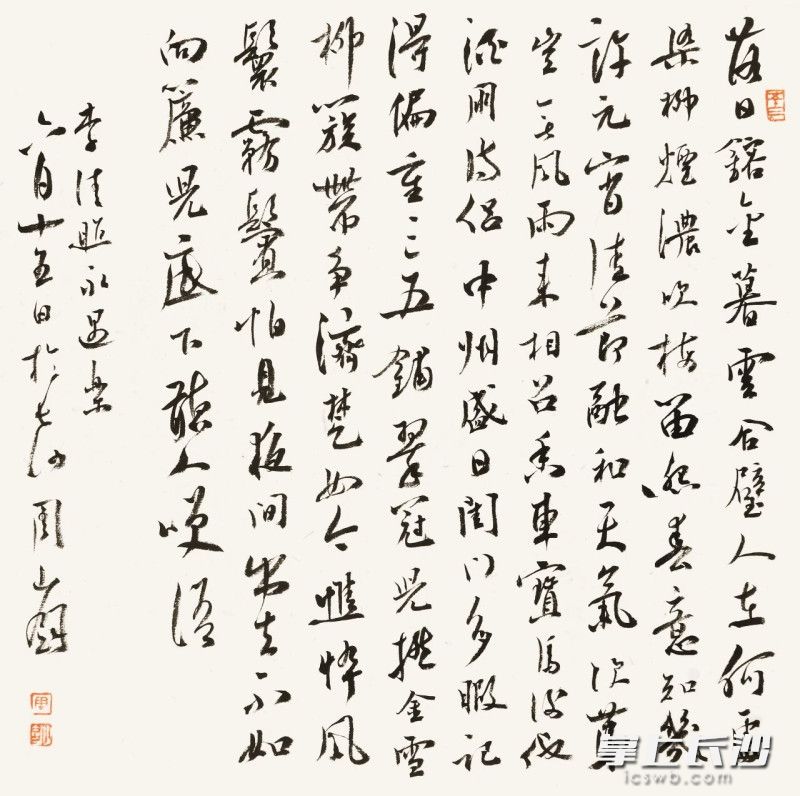 落日鎔金暮雲合璧人在何處
染柳煙濃吹梅笛怨春意知幾
許元宵佳節融和天氣次第
豈無風雨來相召香車寶馬謝他
酒朋詩侶中州盛日閨門多暇記
得偏重三五鋪翠冠兒撚金雪
柳簇帶爭濟楚如今憔悴風
鬟霧鬢怕見夜間出去不如
向簾兒底下聽人咲語
李清照永遇樂
六月十五日於長沙周
掌上长沙
icswb.com